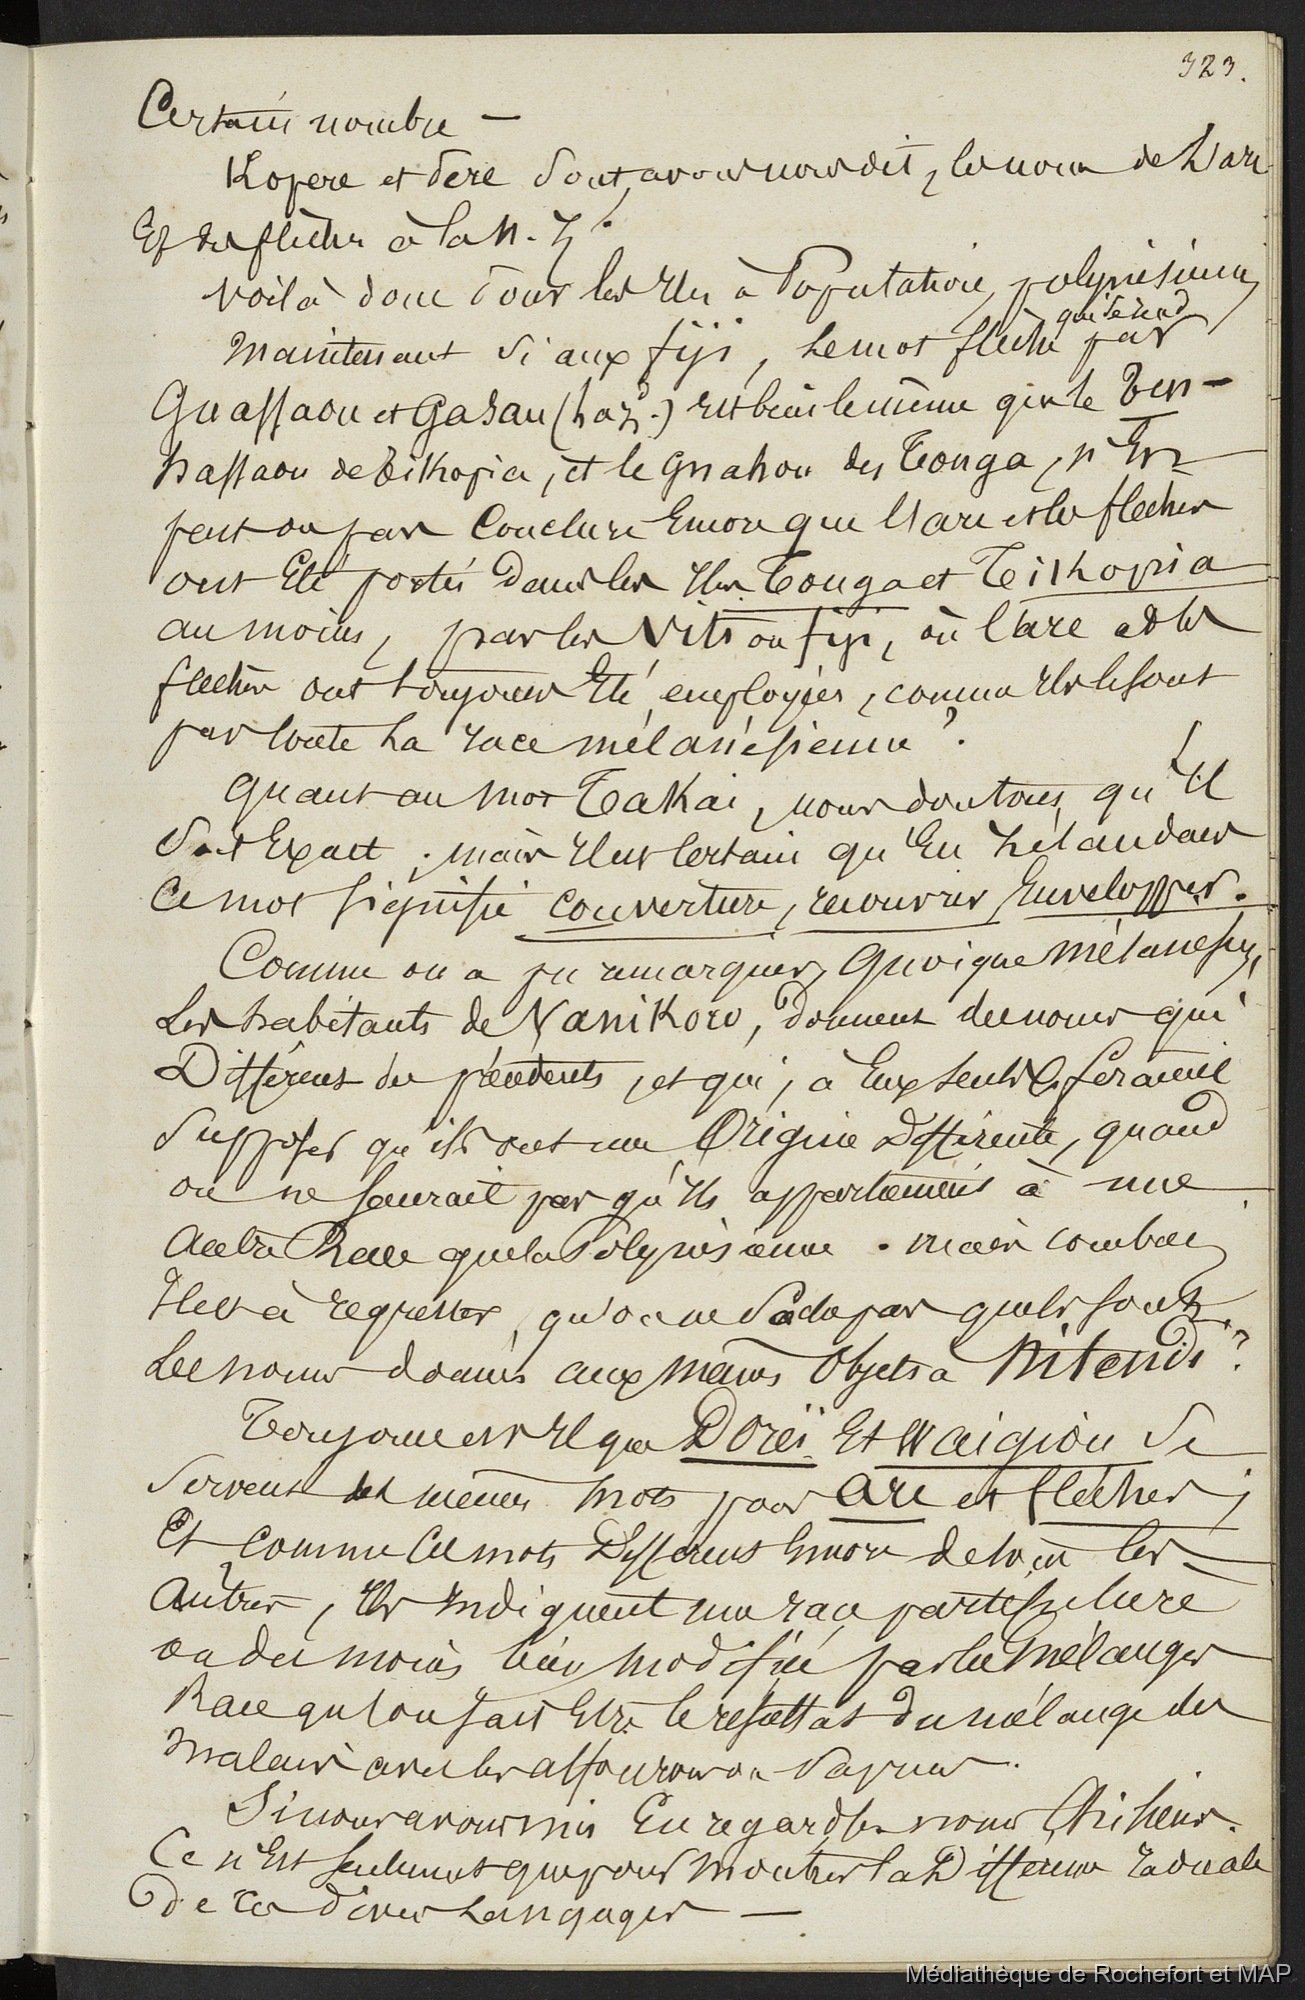 323.
Certain nombre —
Kopere et Pere sont, avons nous dit, les noms de l'arc
Et des flèches à la N. Z.
Voilà donc pour les Iles à Population polynésienne,
Maintenant si aux fiji, le mot flèche qui se rend par
Guassaou et Gasau (haz.) est bien le même que le
hassaou de Tikopia, et le gnahou des Tonga, n'En
peut on pas Conclure Encore que l'arc et les flèches
ont Eté portés dans les Iles Tonga et Tikopia
au moins, par les Vitis ou fiji, où l'arc et les
flèches ont toujours Eté employés, comme Ils le sont
par toute la race mélanésienne?
Quant au mot Takai, nous doutons, qu'Il
soit Exact, mais Il est Certain qu'En Zélandais
Ce mot signifie couverture, recouvrir, Envelopper.
Comme on a pu remarquer, quoique mélanésiens,
Les habitants de Vanikoro, donnent des noms qui
Différent des précédents, et qui, à Eux seuls feraient
supposer qu'ils ont une Origine Différente, quand
on ne saurait pas qu'Ils appartiennent à une
Autre Race que la Polynésienne. mais combien
Il est à regretter, qu'on ne sache pas quels sont
Les noms donnés aux mêmes Objets à Nitendi?
Toujours est-Il que Doreï Et Waigiou se
servent des mêmes mots pour arc et flèches;
Et comme Ces mots Différent Encore de tous les
Autres, Ils Indiquent une race particulière
ou du moins bien modifiée par les mélanges
Race qu'on sait Etre le résultat du mélange des
Malais avec les alfourous ou Papous.
Si nous avons mis En regard les noms Chiliens.
Ce n'Est seulement que pour montrer la Différence radicale
De ces divers Langages —
Médiathèque de Rochefort et MAP